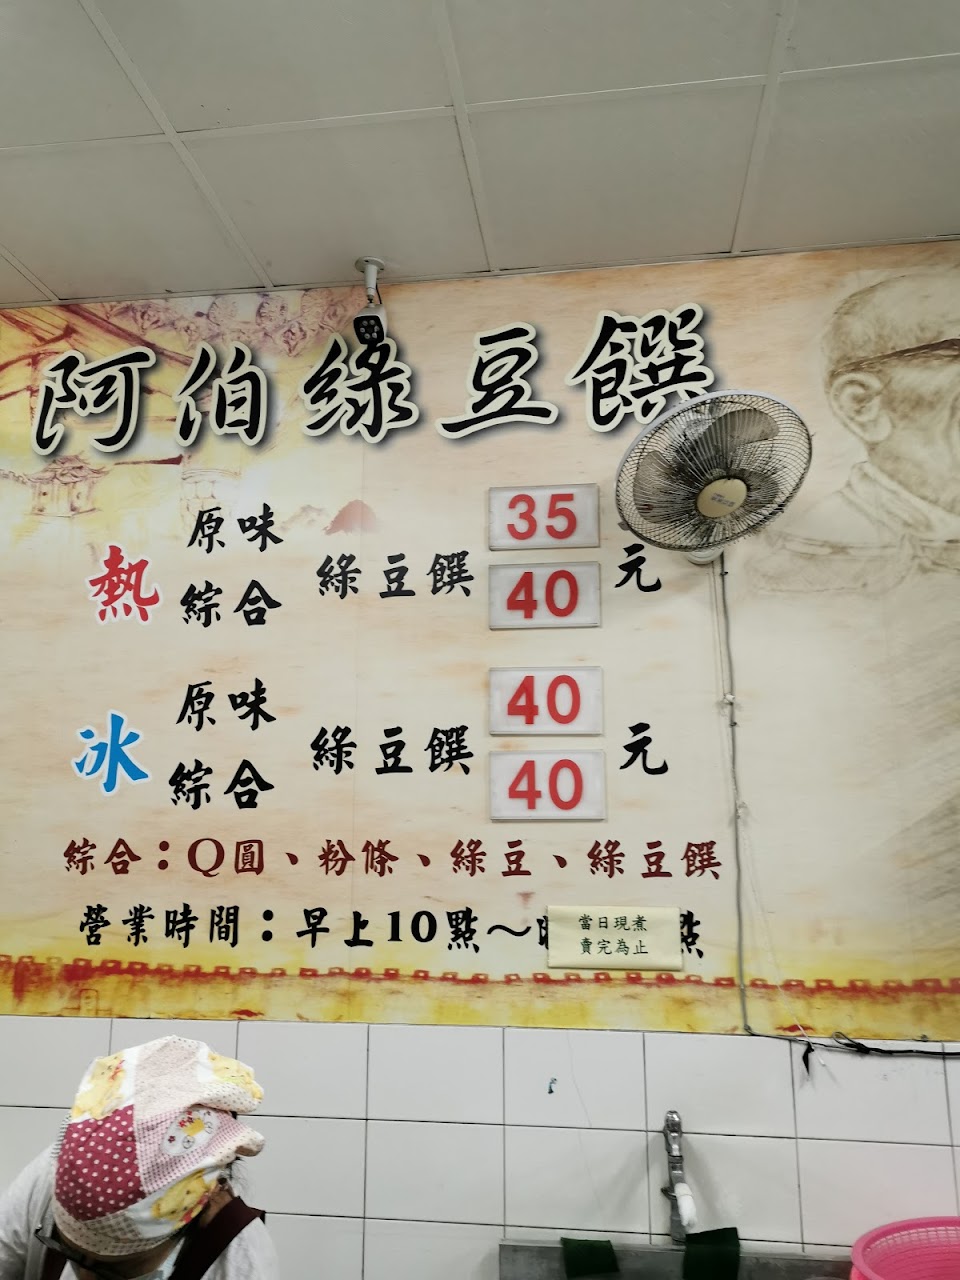 阿伯綠豆饌
熱 原味 綠豆饌 35 元
綜合 40
冰 原味 綠豆饌 40 元
綜合 40
綜合：Q圓、粉條、綠豆、綠豆饌
營業時間：早上10點～ 點
當日現煮
賣完為止